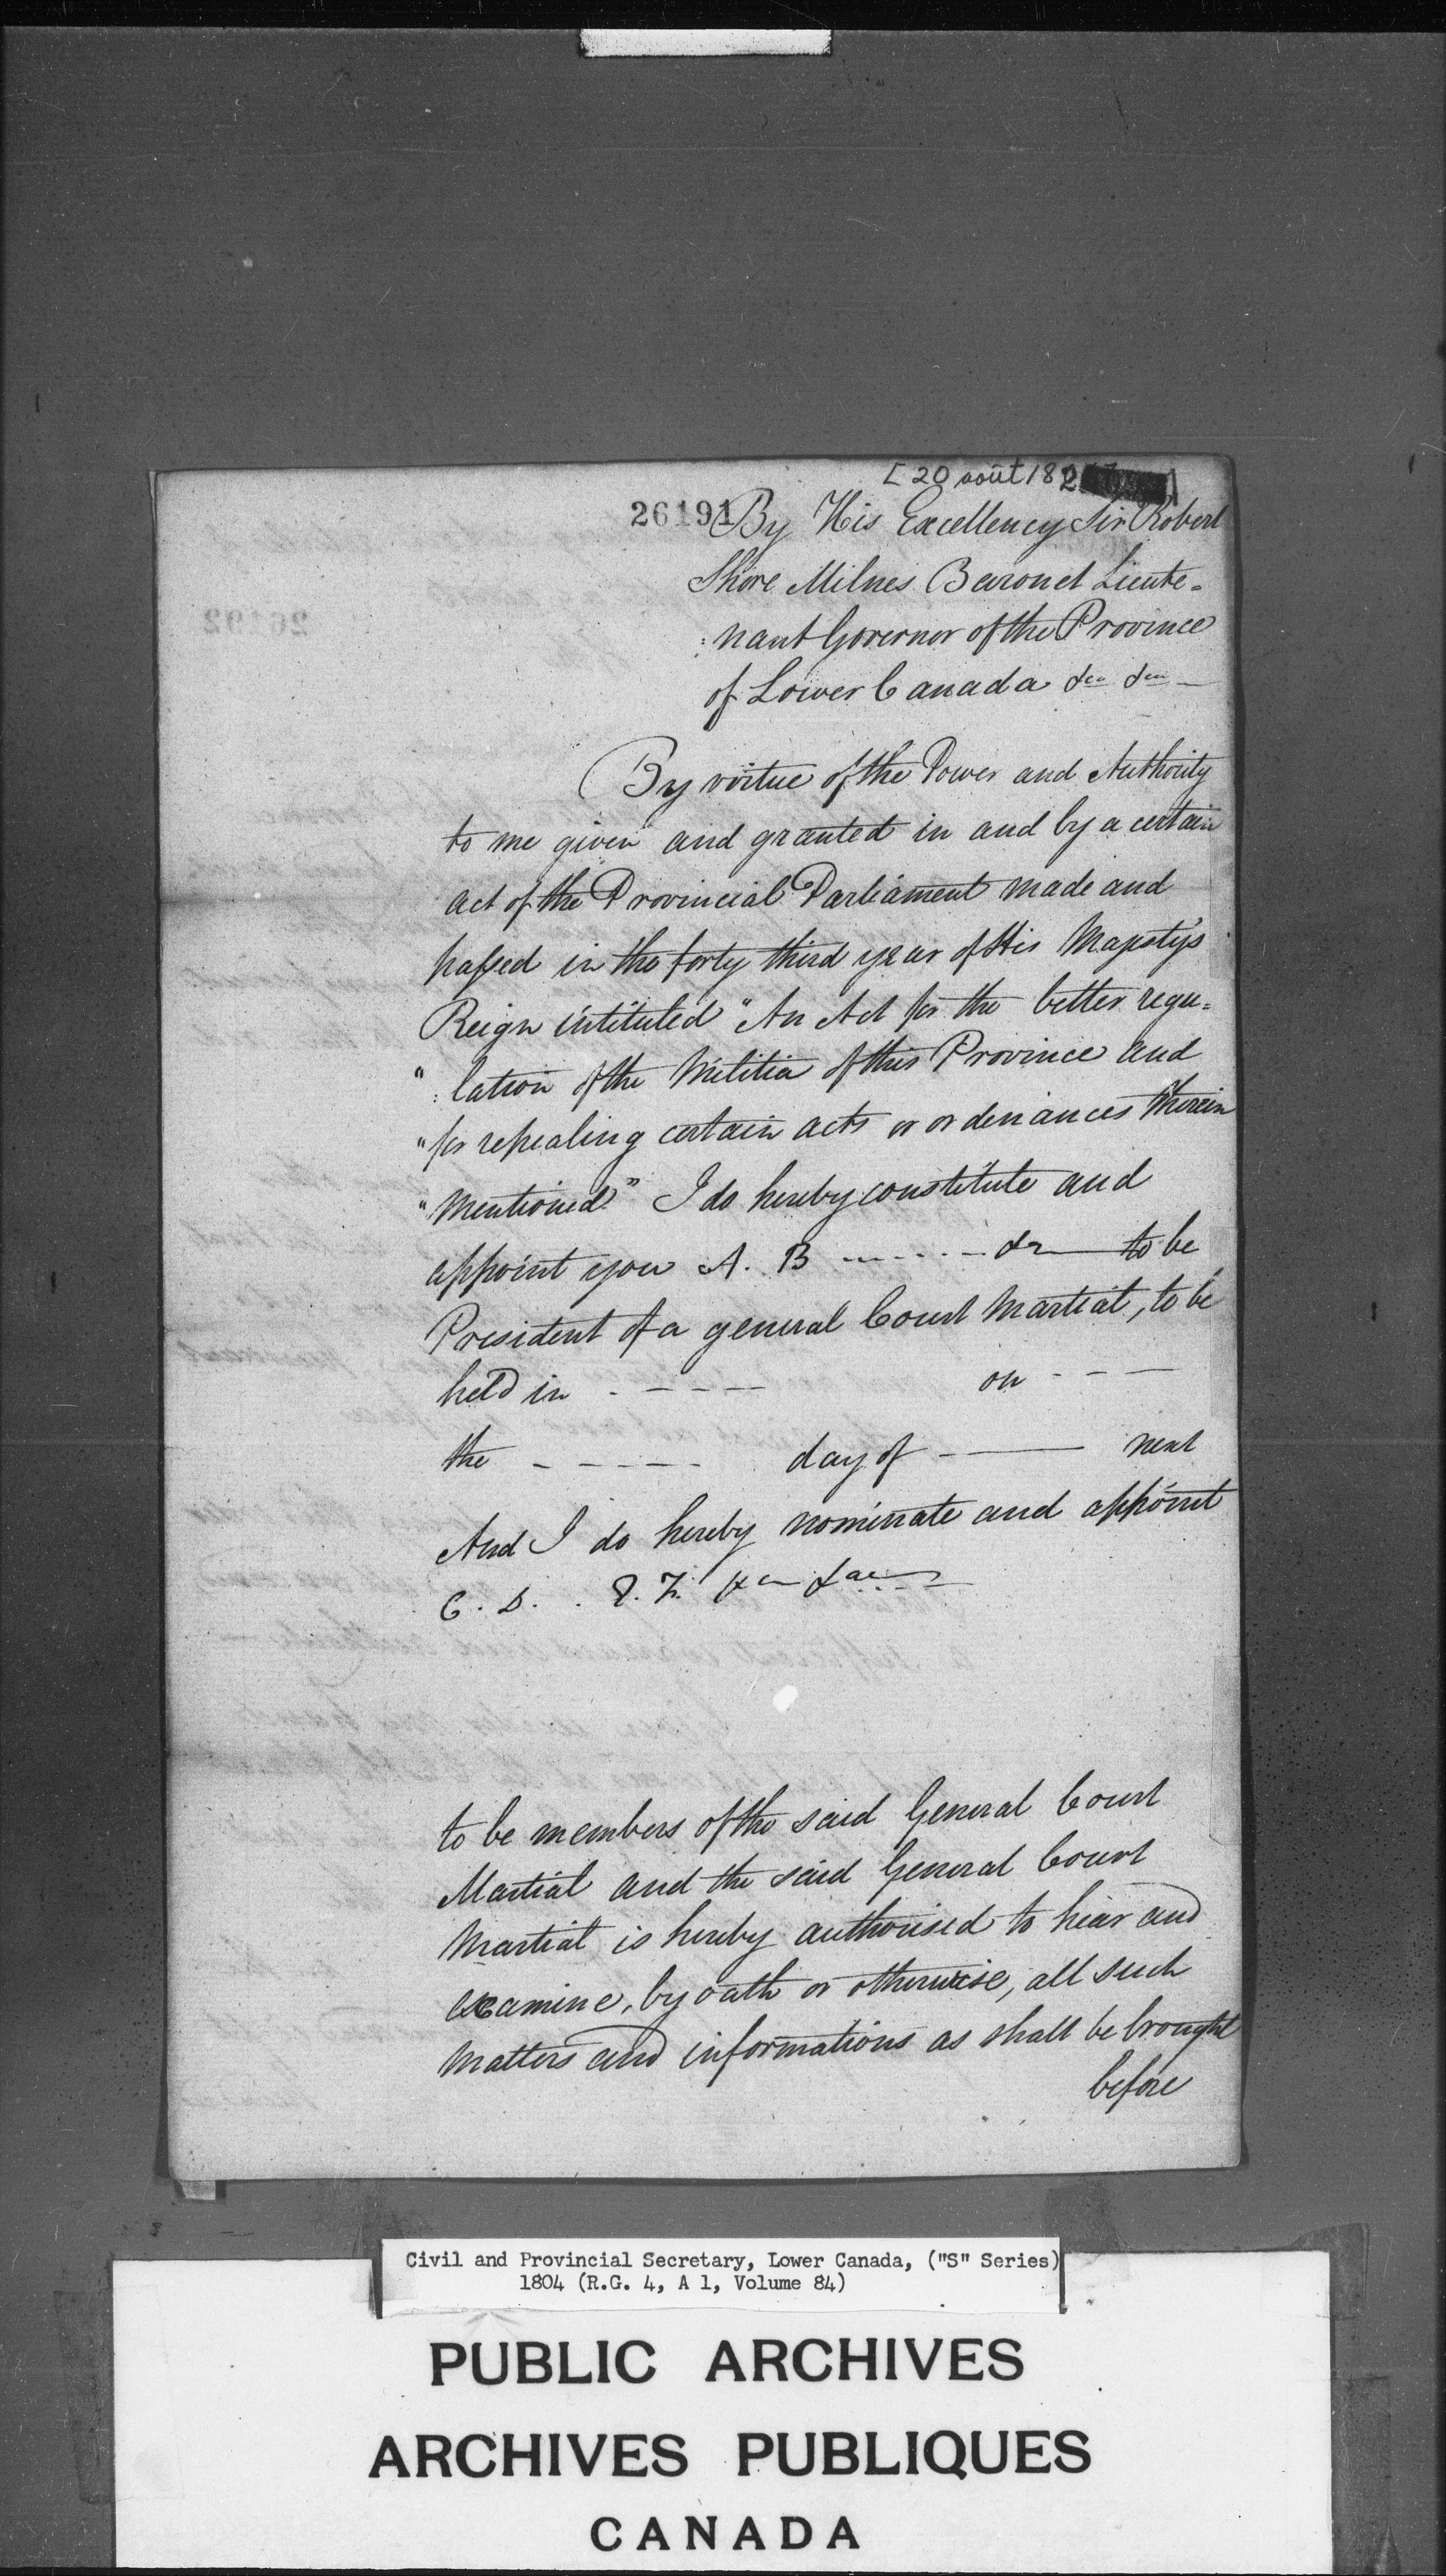 [20 août 18
26191
By His Excellency Sir Robert
Shore Milnes Baronet Lieute=
:nant Governor of the Province
of Lower Canada &ca &ca —
By virtue of the Power and Authority
to me given and granted in and by a certain
act of the Provincial Parliament made and
passed in the forty third year of His Majesty's
Reign intituled "An Act for the better regu=
" :lation of the Militia of this Province and
"for repealing certain acts or ordenances therein
"mentioned" I do hereby constitute and
appoint you A. B ------ &c — to be
President of a general Court Martial, to be
held in ----- on ---
the ----- day of —— next
And I do hereby nominate and appoint
C. D. . E. F. &ca &ca
to be members of the said General Court
Martial and the said General Court
Martial is hereby authorised to hear and
examine, by oath or otherwise, all such
matters and informations as shall be brought
before
Civil and Provincial Secretary, Lower Canada, ("S" Series)
1804 (R.G. 4, A 1, Volume 84)
PUBLIC ARCHIVES
ARCHIVES PUBLIQUES
CANADA